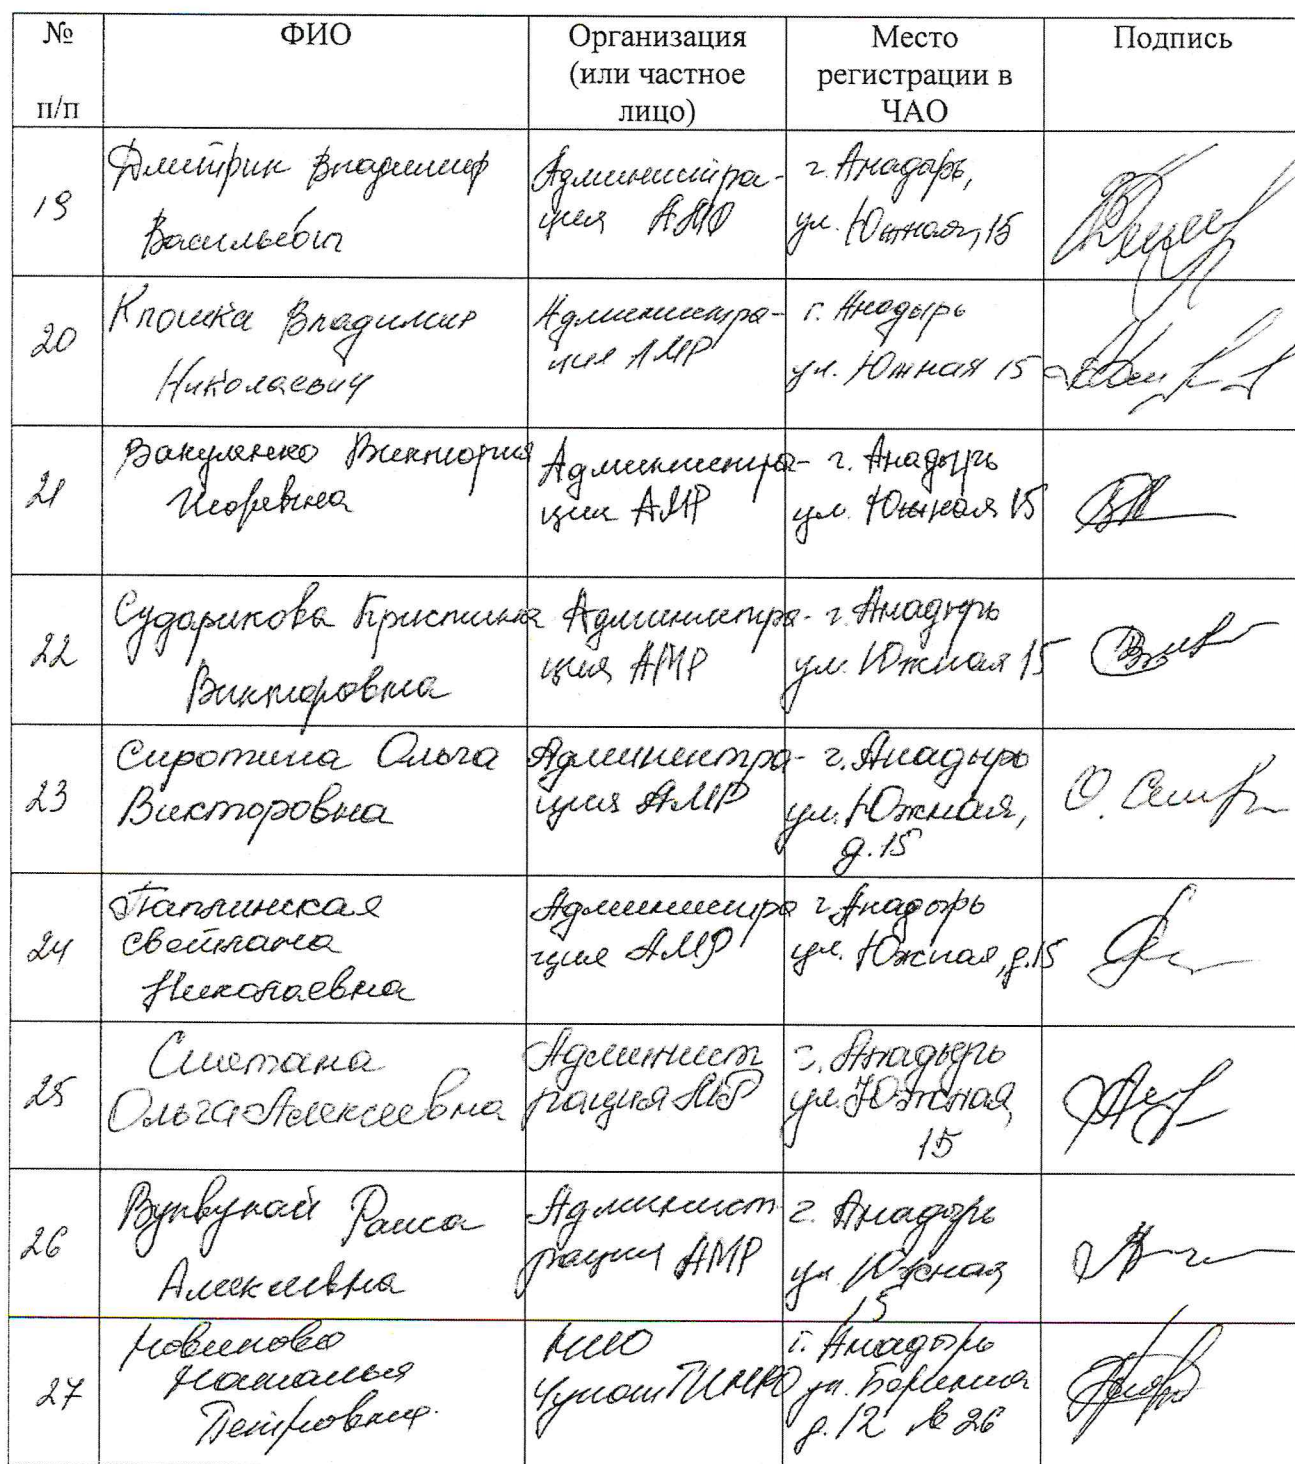 № п/п ФИО Организация (или частное лицо) Место регистрации в ЧАО Подпись
19 Дмитрик Владимир Васильевич Администрация АМР г. Анадырь, ул. Южная, 15
20 Клошка Владимир Николаевич Администрация АМР г. Анадырь ул. Южная 15
21 Вакуленко Виктория Игоревна Администрация АМР г. Анадырь ул. Южная 15
22 Сударикова Кристина Викторовна Администрация АМР г. Анадырь ул. Южная 15
23 Сиротина Ольга Викторовна Администрация АМР г. Анадырь ул. Южная, д. 15
24 Таплинская Светлана Николаевна Администрация АМР г. Анадырь ул. Южная, д. 15
25 Сметана Ольга Алексеевна Администрация АМР г. Анадырь ул. Южная 15
26 Вуквукай Раиса Алексеевна Администрация АМР г. Анадырь ул. Южная 15
27 Новикова Наталья Петровна г. Анадырь ул. д. 12 26